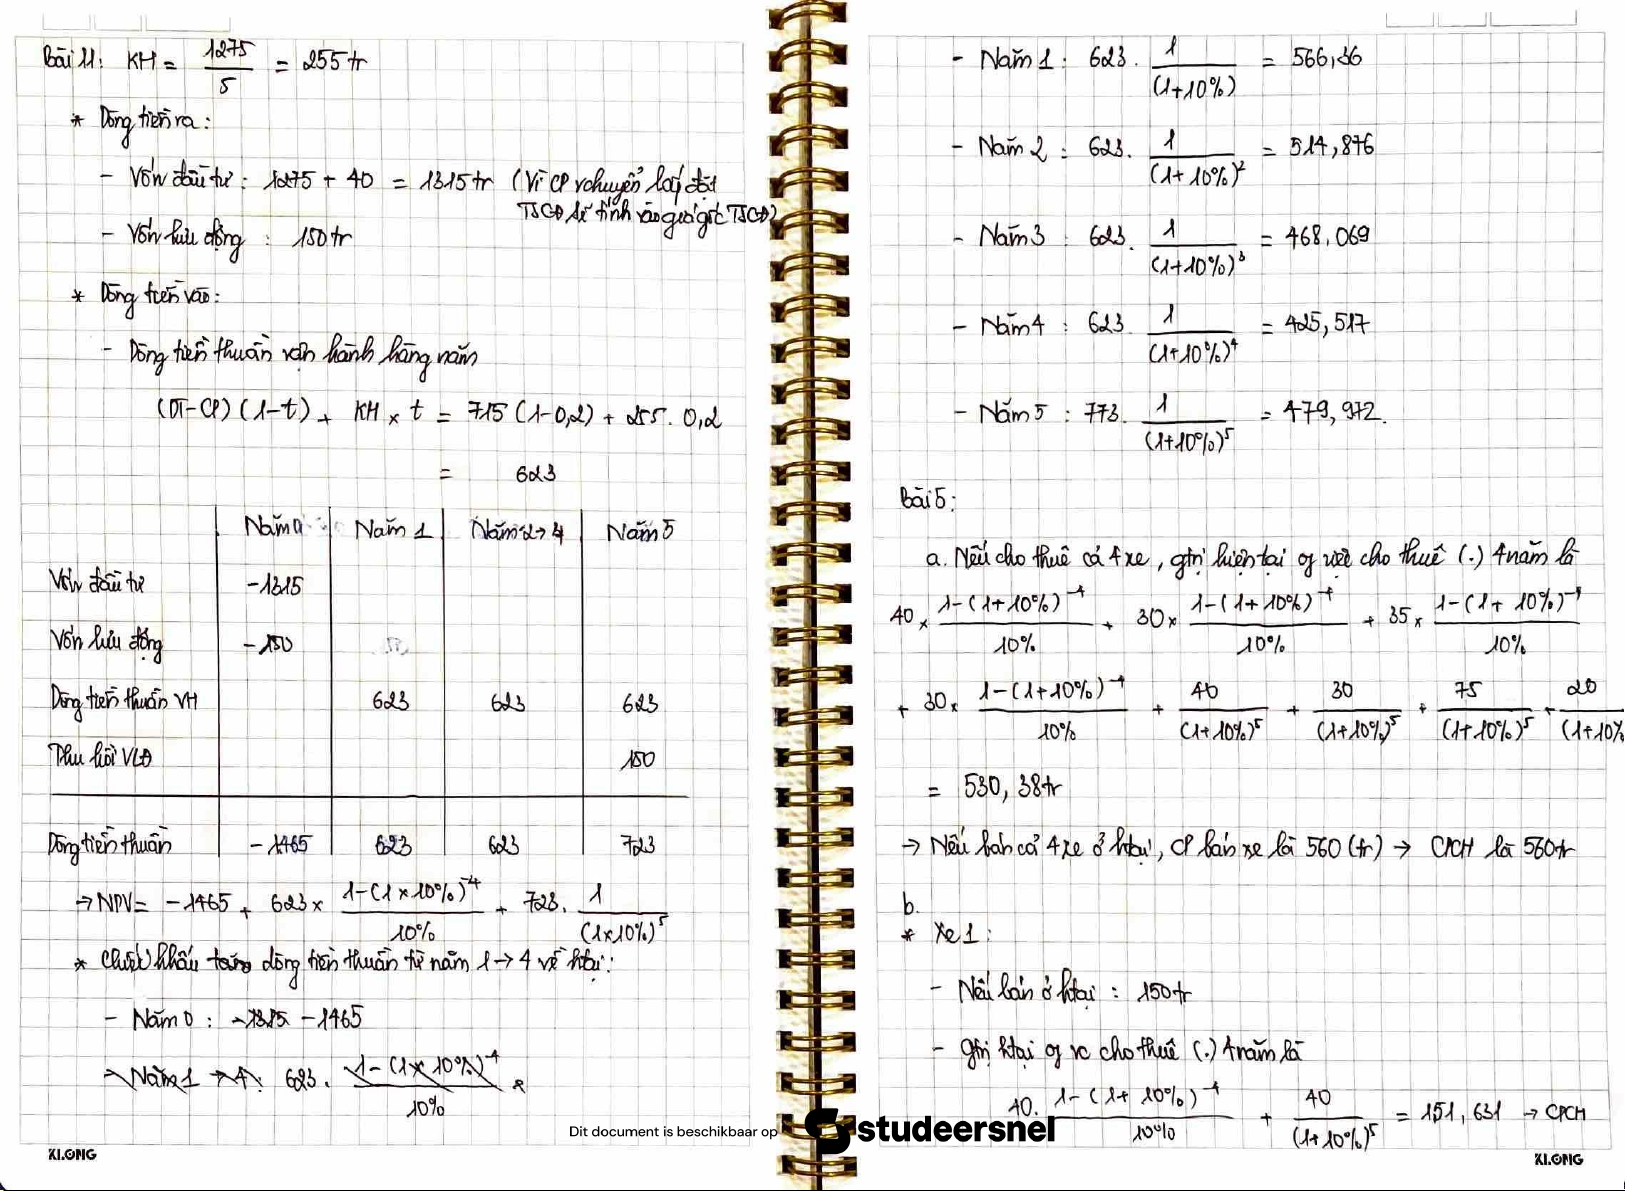 Bài 11: KH = 1275/5 = 255tr
* Dòng tiền ra:
- Vốn đầu tư: 1275 + 40 = 1315tr (Vì CP vchuyển lắp đặt
TSCĐ sẽ tính vào giá gốc TSCĐ)
- Vốn lưu động : 150tr
* Dòng tiền vào:
- Dòng tiền thuần vận hành hàng năm
(DT-CP)(1-t) + KH × t = 715(1-0,2) + 255.0,2
= 623
Năm 0 Năm 1 Năm 2→4 Năm 5
Vốn đầu tư -1315
Vốn lưu động -150
Dòng tiền thuần VH 623 623 623
Thu hồi VLĐ 150
Dòng tiền thuần -1465 623 623 723
→ NPV = -1465 + 623 × (1-(1×10%)^-4)/10% + 723. 1/(1×10%)^5
* Chiết khấu dòng tiền thuần từ năm 1→4 về htại:
- Năm 0 : -1315 -1465
→ Năm 1 → 4: 623. (1-(1×10%)^-4)/10%
KLONG
- Năm 1 : 623. 1/(1+10%) = 566,36
- Năm 2 : 623. 1/(1+10%)^2 = 514,876
- Năm 3 : 623. 1/(1+10%)^3 = 468,069
- Năm 4 : 623 1/(1+10%)^4 = 425,517
- Năm 5 : 773. 1/(1+10%)^5 = 479,972.
Bài 5:
a. Nếu cho thuê cả 4 xe, gtrị hiện tại of việc cho thuê (.) 4 năm là
40 × (1-(1+10%)^-4)/10% + 30 × (1-(1+10%)^-4)/10% + 35 × (1-(1+10%)^-4)/10%
+ 30 × (1-(1+10%)^-4)/10% + 40/(1+10%)^5 + 30/(1+10%)^5 + 75/(1+10%)^5 + 20/(1+10%
= 530,38tr
→ Nếu bán cả 4 xe ở htại, CP bán xe là 560 (tr) → CPCH là 560tr
b.
* Xe 1:
- Nếu bán ở htại : 150tr
- gtrị htại of vc cho thuê (.) 4 năm là
40. (1-(1+10%)^-4)/10% + 40/(1+10%)^5 = 151,631 → CPCH
Dit document is beschikbaar op studeersnel
KLONG